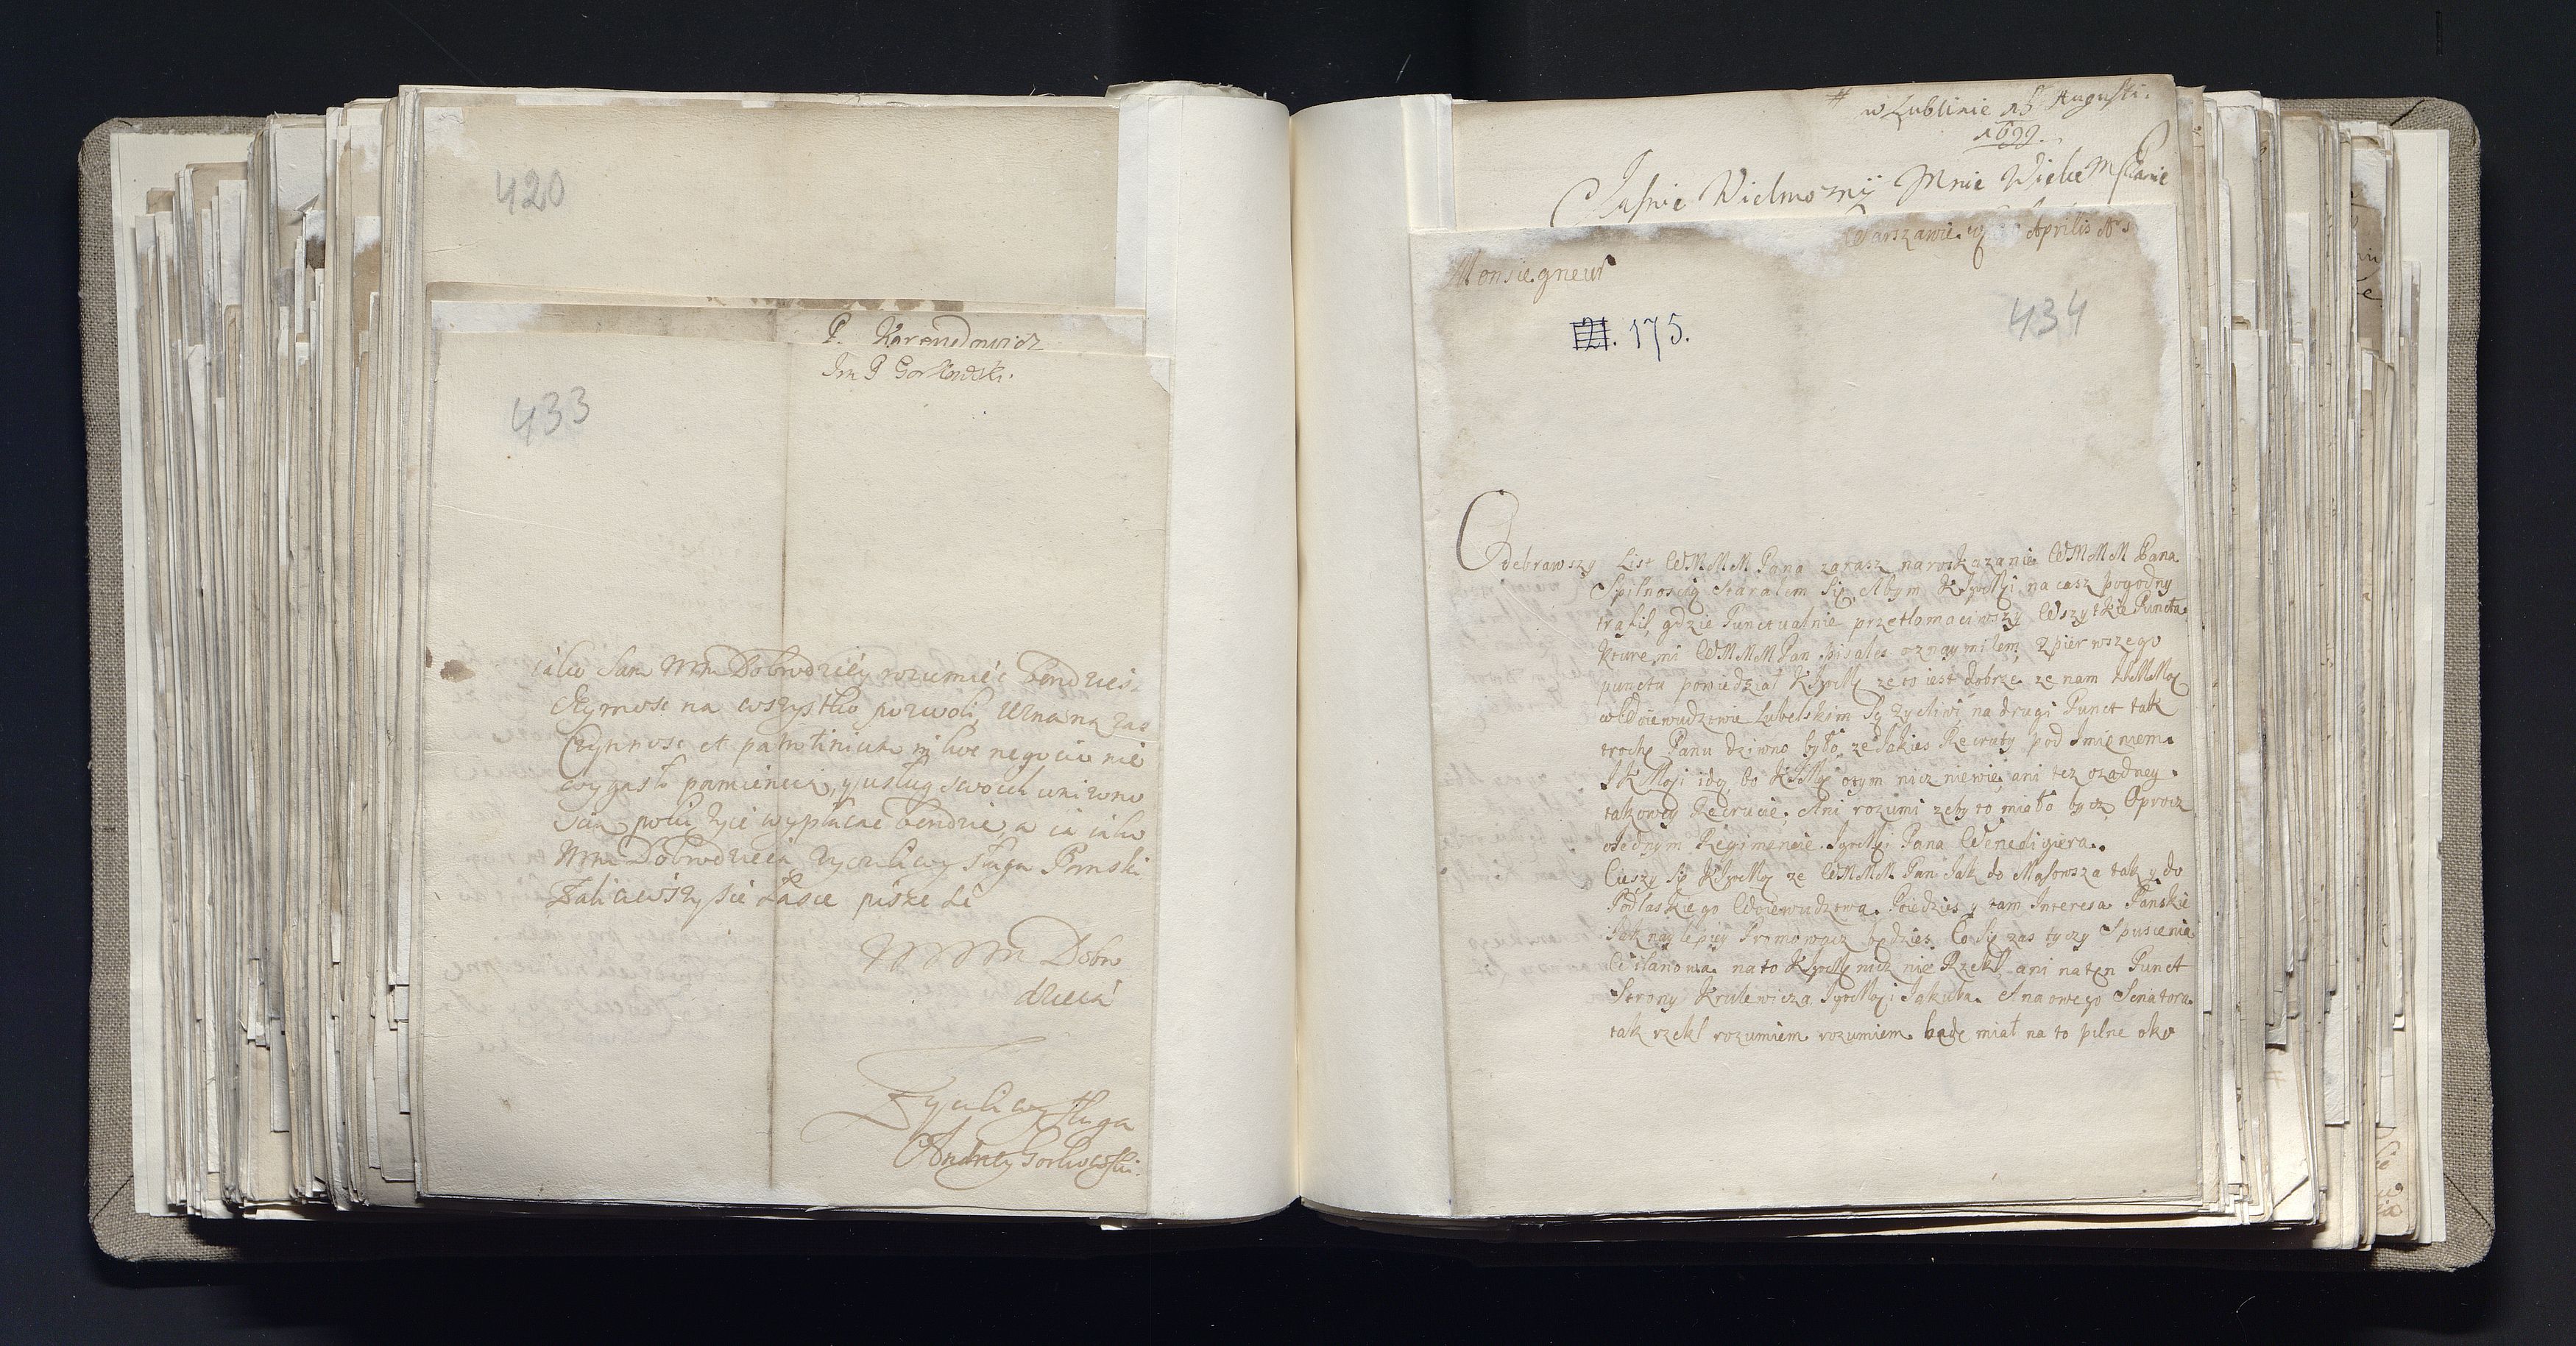 420
P. Karendowicz
Im P Gorkowski.
433
iako Sam Mm Dobrodziey rozumieć bendzies.
na wszystko pozwoli, uzna na zas
Czynnosc et
wygasł pamienciá, y usług swoich
zycie wypłacac bendzie, a ia iako
Mm Dobrodzieia zyczliwy sługa
Zaliciwszy sie Łasce pisze sie
Mm Dobro
dzieia
Zyczliwy sługa
Andrzey Gorkowski.
# w Lublinie 15 Augusti.
1699.
Jasnie Wielmozny Mnie Wielce Msci Panie
Warszawie Aprilis
Monsiegneur
175.
434
Odebrawszy List WMMM Pana zarasz naroskazanie WMMM Pana
Spilnoscią Staralem Się, Abym na casz pogodny
trafił, gdzie Punctualnie przetlomaciwszy Wszytkie Puncta
kture mi WMMM Pan pisales oznaymilem, Zpierwszego
punctu powiedział ze to iest dobrze ze nam
wWoiewudztwie Lubelskim Są zycliwi, na drugi Punct tak
trochę Panu dziwno było, ze Jakies Recruty pod Imieniem
idą, bo otym nicz niewie, ani tez ozadney
takowey Recrucie, Ani rozumi zeby to miało bycz, Oprocz
oJednym Regimencie Pana Wenedigiera.
Cieszy Się ze WMMM Pan Jak do Masowsza tak y do
Podlaskiego Woiewudztwa Poiedzies y tam Interesa Panskie
Jak naylepiey Promowacz będzies, Co Się zas tyczy Spuscenia
Wilanowa na to nicz nie Rzekł, ani na ten Punct
Strony Krulewicza Jakuba. A na owego Senatora
tak rzekł rozumiem rozumiem bądę miał na to pilne oko